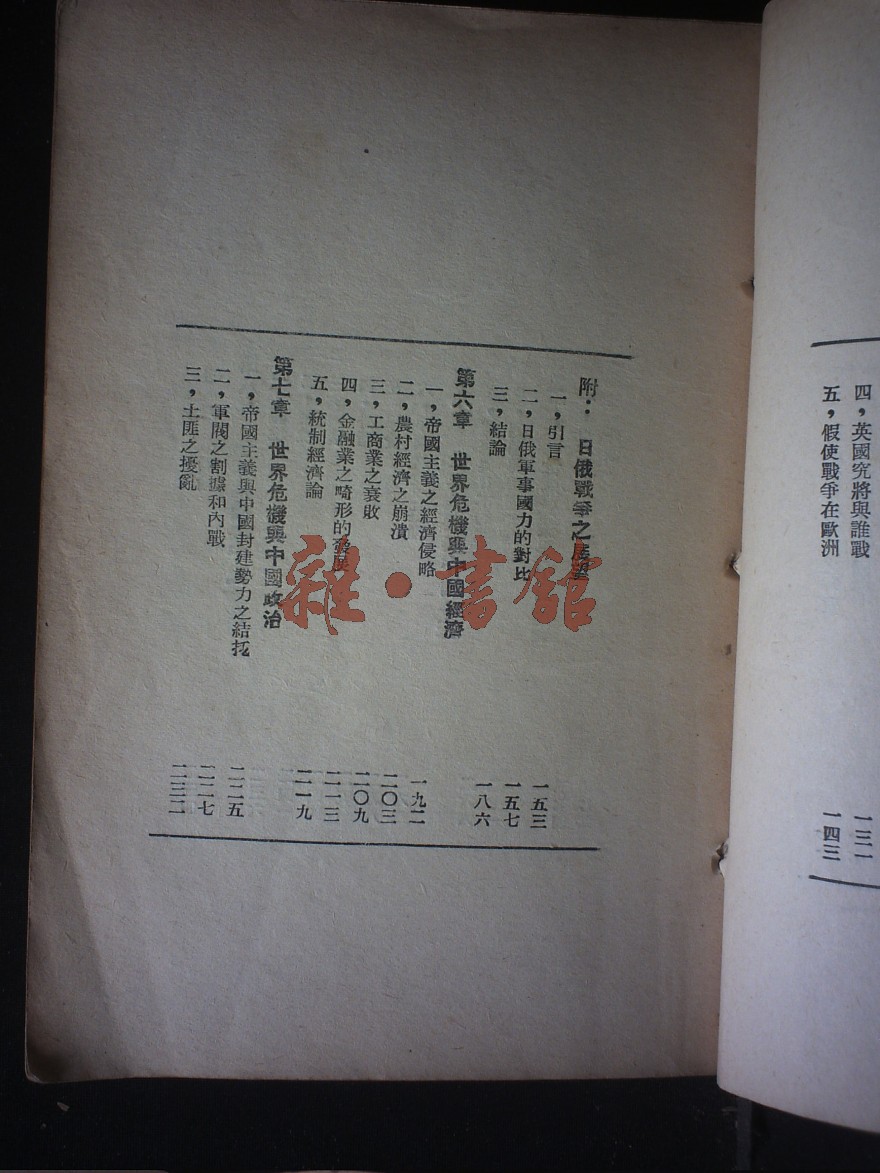 四，英國究將與誰戰 一三一
五，假使戰爭在歐洲 一四三
附： 日俄戰爭之展望
一，引言 一五三
二，日俄軍事國力的對比 一五七
三，結論 一八六
第六章 世界危機與中國經濟
一，帝國主義之經濟侵略 一九二
二，農村經濟之崩潰 二〇三
三，工商業之衰敗 二〇九
四，金融業之畸形的發展 二一三
五，統制經濟論 二一九
第七章 世界危機與中國政治
一，帝國主義與中國封建勢力之結托 二二五
二，軍閥之割據和內戰 二二七
三，土匪之擾亂 二三二
雜·書館